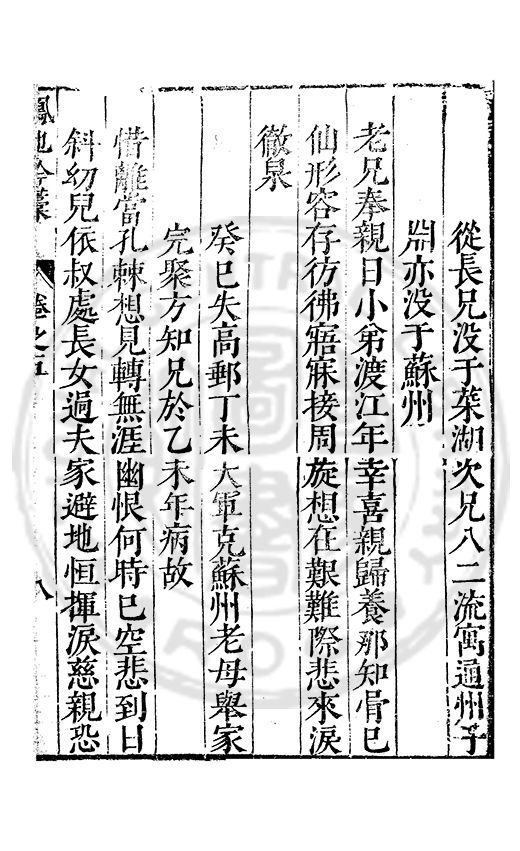 從長兄没于蕪湖次兄八二流寓通州子
喌亦没于蘇州
老兄奉親日小弟渡江年幸喜親歸養那知骨已
仙形容存彷彿寤寐接周旋想在艱難際悲來淚
徹泉
癸巳失高郵丁未大軍克蘇州老母舉家
完聚方知兄於乙未年病故
惜離當孔棘想見轉無涯幽恨何時已空悲到日
斜幼兒依叔處長女過夫家避地恒揮淚慈親恐
鳳池吟藁 卷之五 八